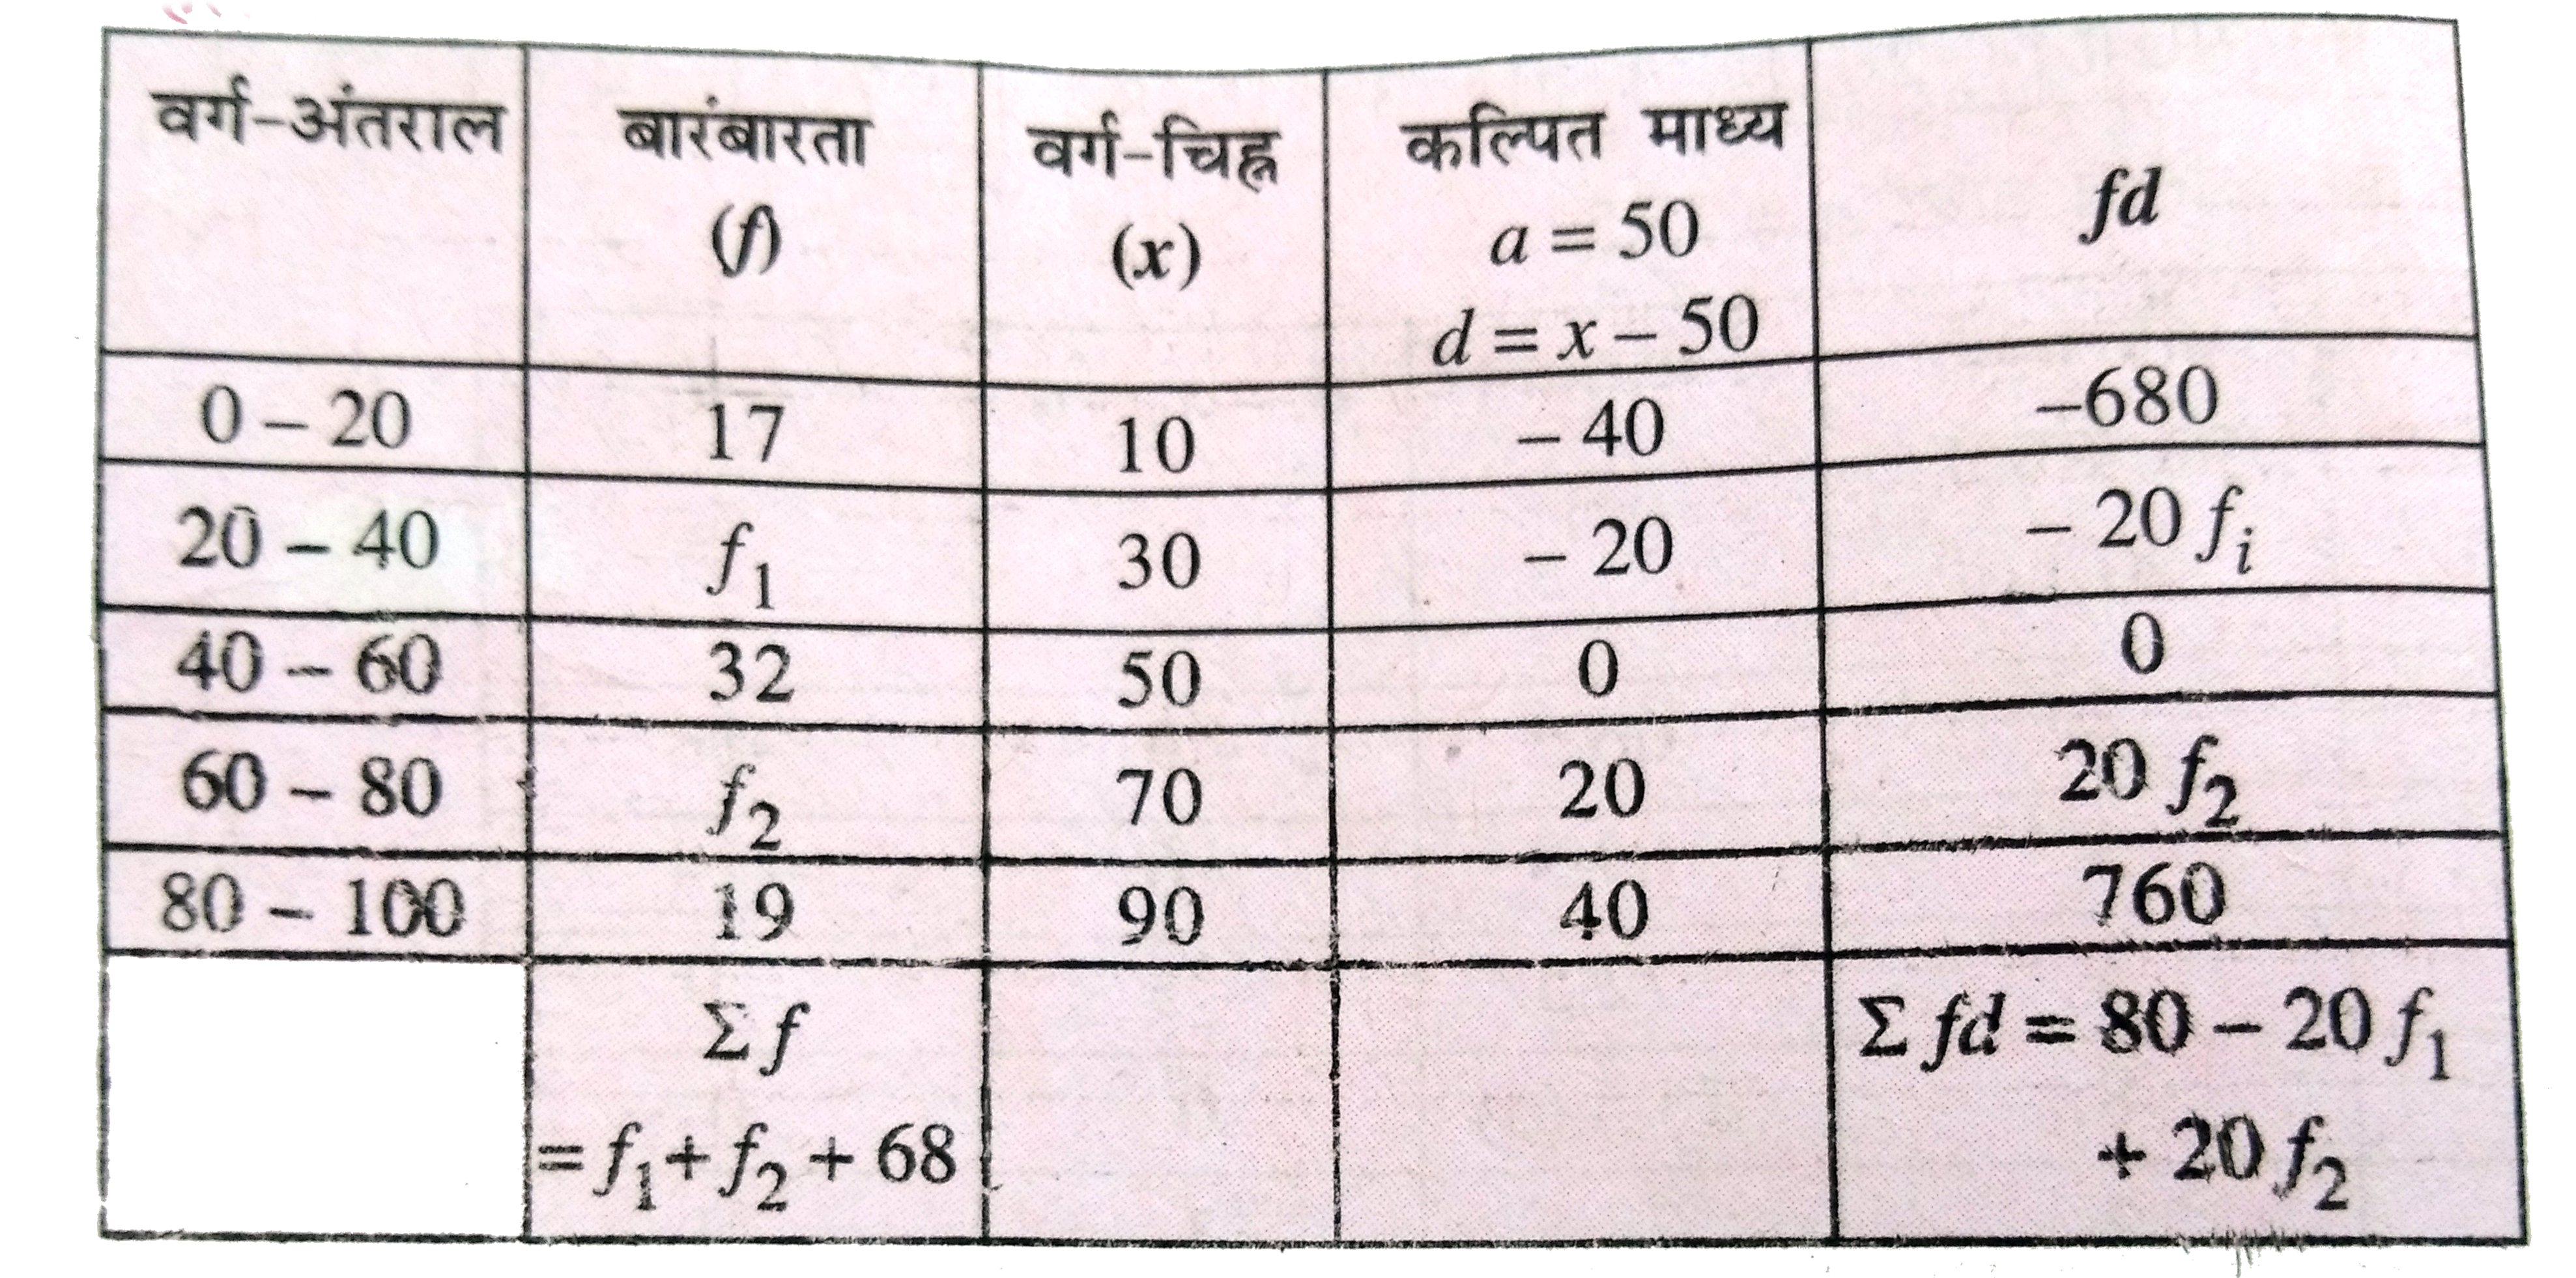 वर्ग-अंतराल बारंबारता (f) वर्ग-चिह्न (x) कल्पित माध्य a = 50 d = x – 50 fd
0 – 20 17 10 – 40 –680
20 – 40 f₁ 30 – 20 – 20 fᵢ
40 – 60 32 50 0 0
60 – 80 f₂ 70 20 20 f₂
80 – 100 19 90 40 760
Σ f = f₁ + f₂ + 68 Σ fd = 80 – 20 f₁ + 20 f₂